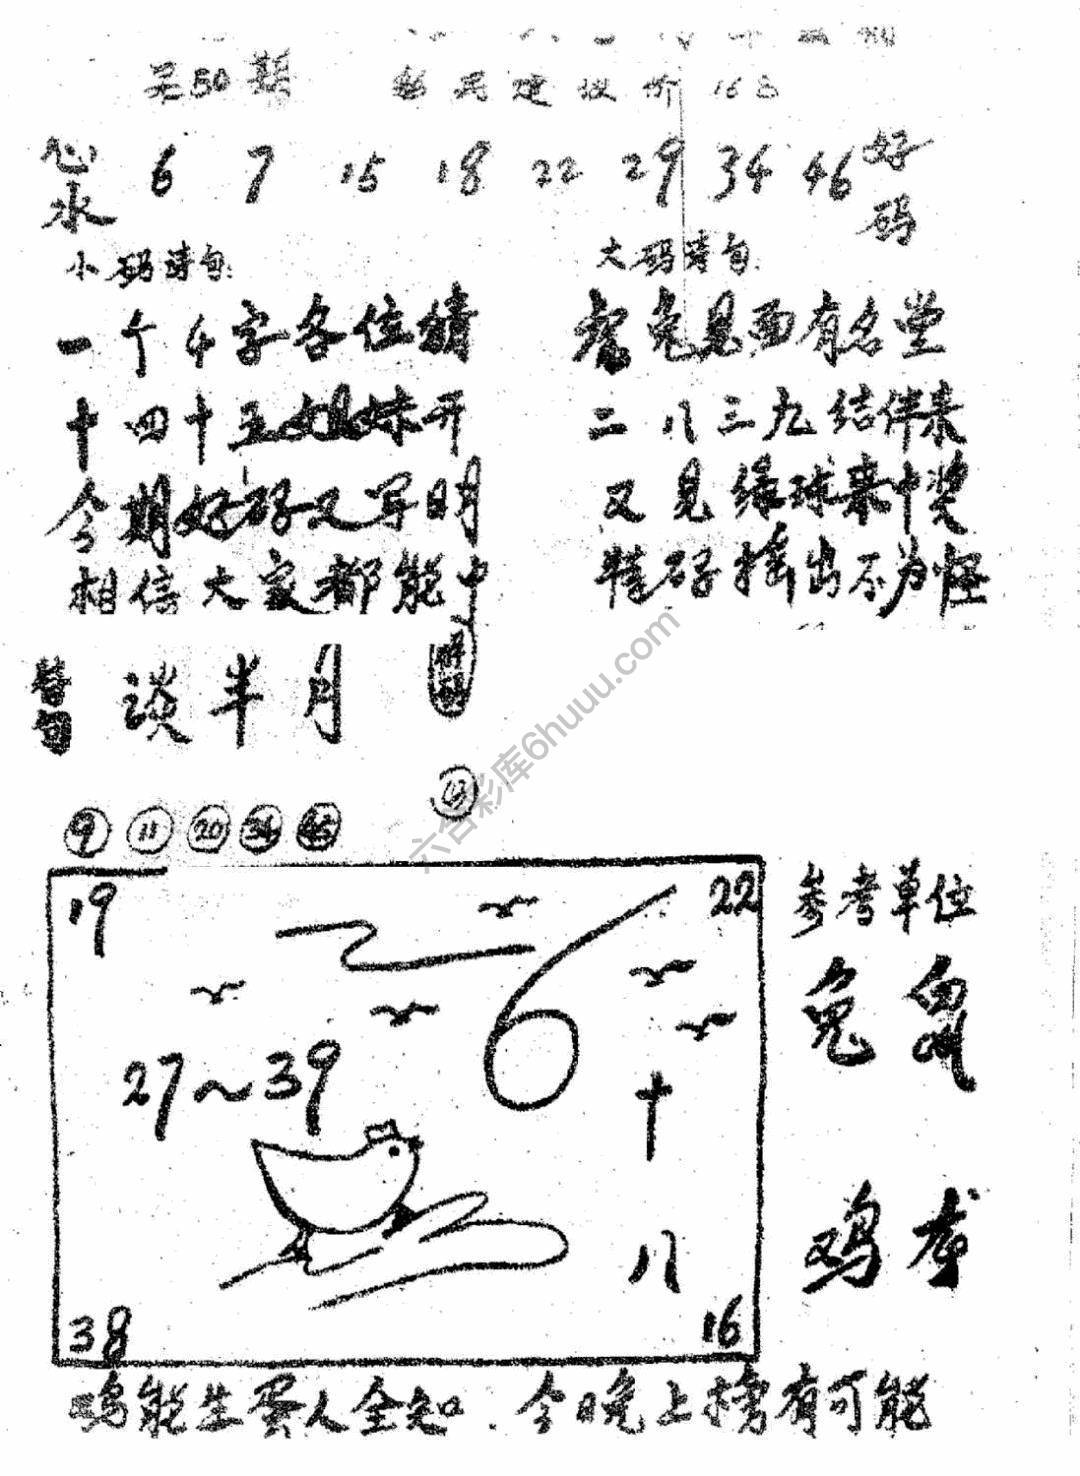 第50期
心水 6 7 15 18 22 29 34 46 好码
小码诗句:
一个4字各位猜
十四十五姐妹开
今期好码又写明
相信大家都能中
大码诗句:
兔见面有名堂
二八三九结伴来
又见绿球来中奖
特码摇出不为怪
谈半月
9 11 20 34 45
六合彩库6huuu.com
19 22
27~39
6
十八
38 16
参考单位
兔鼠
鸡龙
鸡能生蛋人全知.今晚上榜有可能